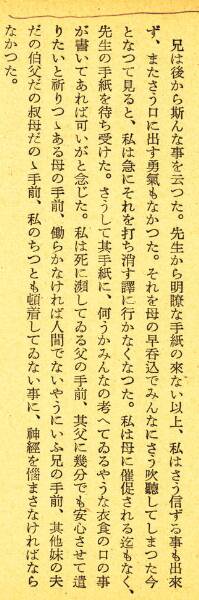 兄は後から斯んな事を云つた。先生から明瞭な手紙の來ない以上、私はさう信ずる事も出來
ず、またさう口に出す勇氣もなかつた。それを母の早呑込でみんなにさう吹聽してしまつた今
となつて見ると、私は急にそれを打ち消す譯に行かなくなつた。私は母に催促される迄もなく、
先生の手紙を待ち受けた。さうして其手紙に、何うかみんなの考へてゐるやうな衣食の口の事
が書いてあれば可いがと念じた。私は死に瀕してゐる父の手前、其父に幾分でも安心させて遣
りたいと祈りつゝある母の手前、働らかなければ人間でないやうにいふ兄の手前、其他妹の夫
だの伯父だの叔母だのゝ手前、私のちつとも頓着してゐない事に、神經を惱まさなければなら
なかつた。